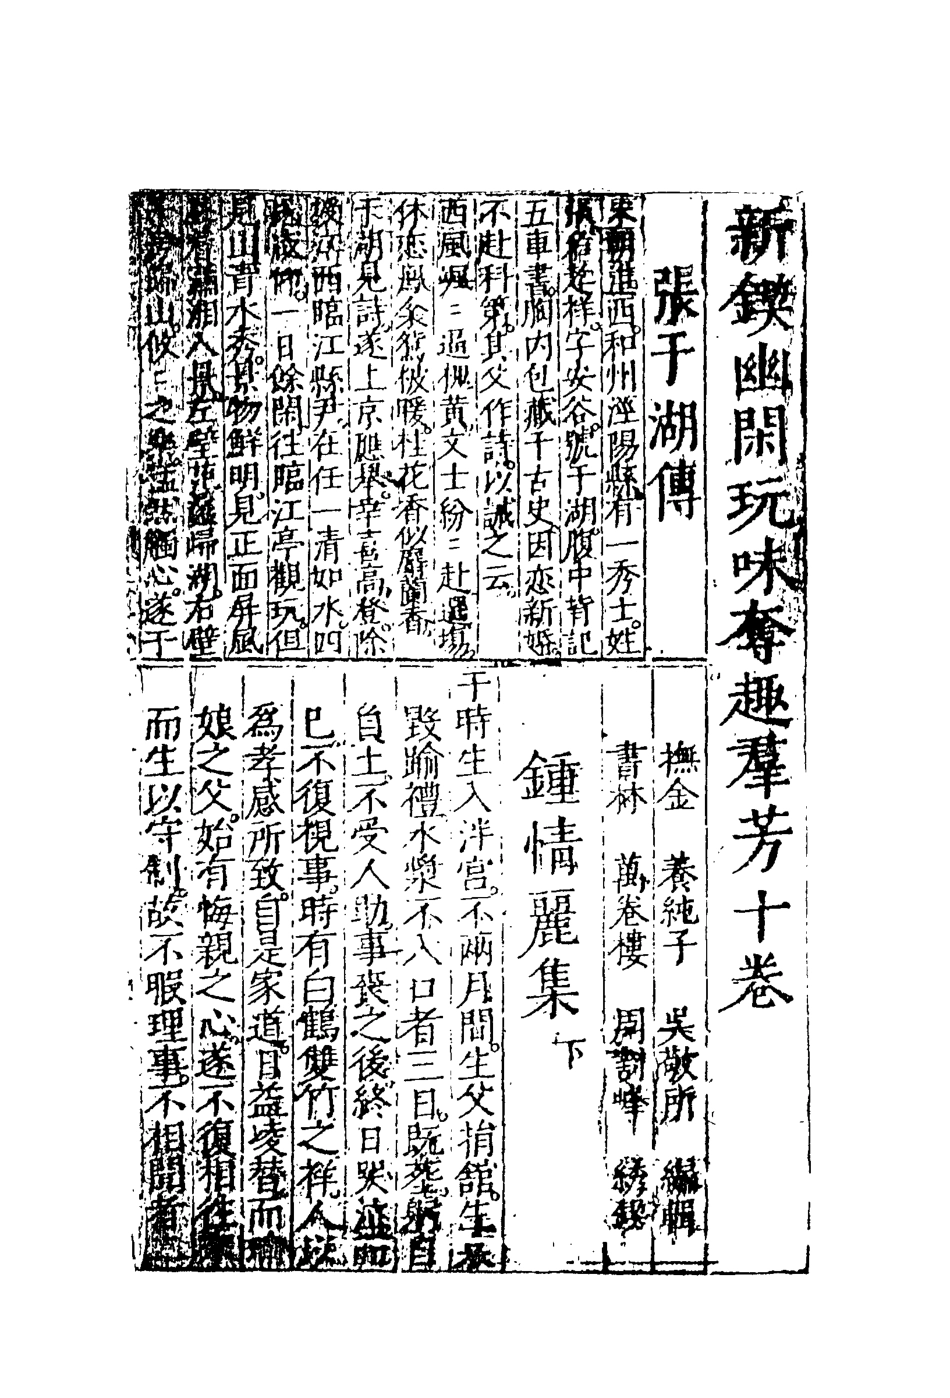 新鍥幽閑玩味奪趣羣芳十卷
張于湖傳
宋朝進西和州涇陽縣有一秀士姓
張名孝祥字安谷號于湖腹中背記
五車書胸内包藏千古史因恋新婚
不赴科第其父作詩以誡之云
西風颯〻過槐黄文士紛〻赴選場
休恋鳳衾鴛被暖桂花香似麝蘭香
于湖見詩遂上京應舉幸喜高登除
授江西臨江縣尹在任一清如水四
民敬仰一日餘閑往臨江亭觀玩但
見山青水秀景物鮮明見正面屏風
看瀟湘八景左望 歸湖右壁
歸山攸〻之樂 然觸心遂于
撫金 養純子 吳敬所 編輯
書林 萬卷樓 周對峰 綉鍥
鍾情麗集 下
于時生入泮宮不兩月間生父捐舘生哀
毀踰禮水漿不入口者三日既葬躬自
負土不受人助事喪之後終日哭泣而
已不復視事時有白鶴雙竹之祥人以
爲孝感所致自是家道日益凌替而瑜
娘之父始有悔親之心遂不復相往
而生以守制故不暇理事不相聞者